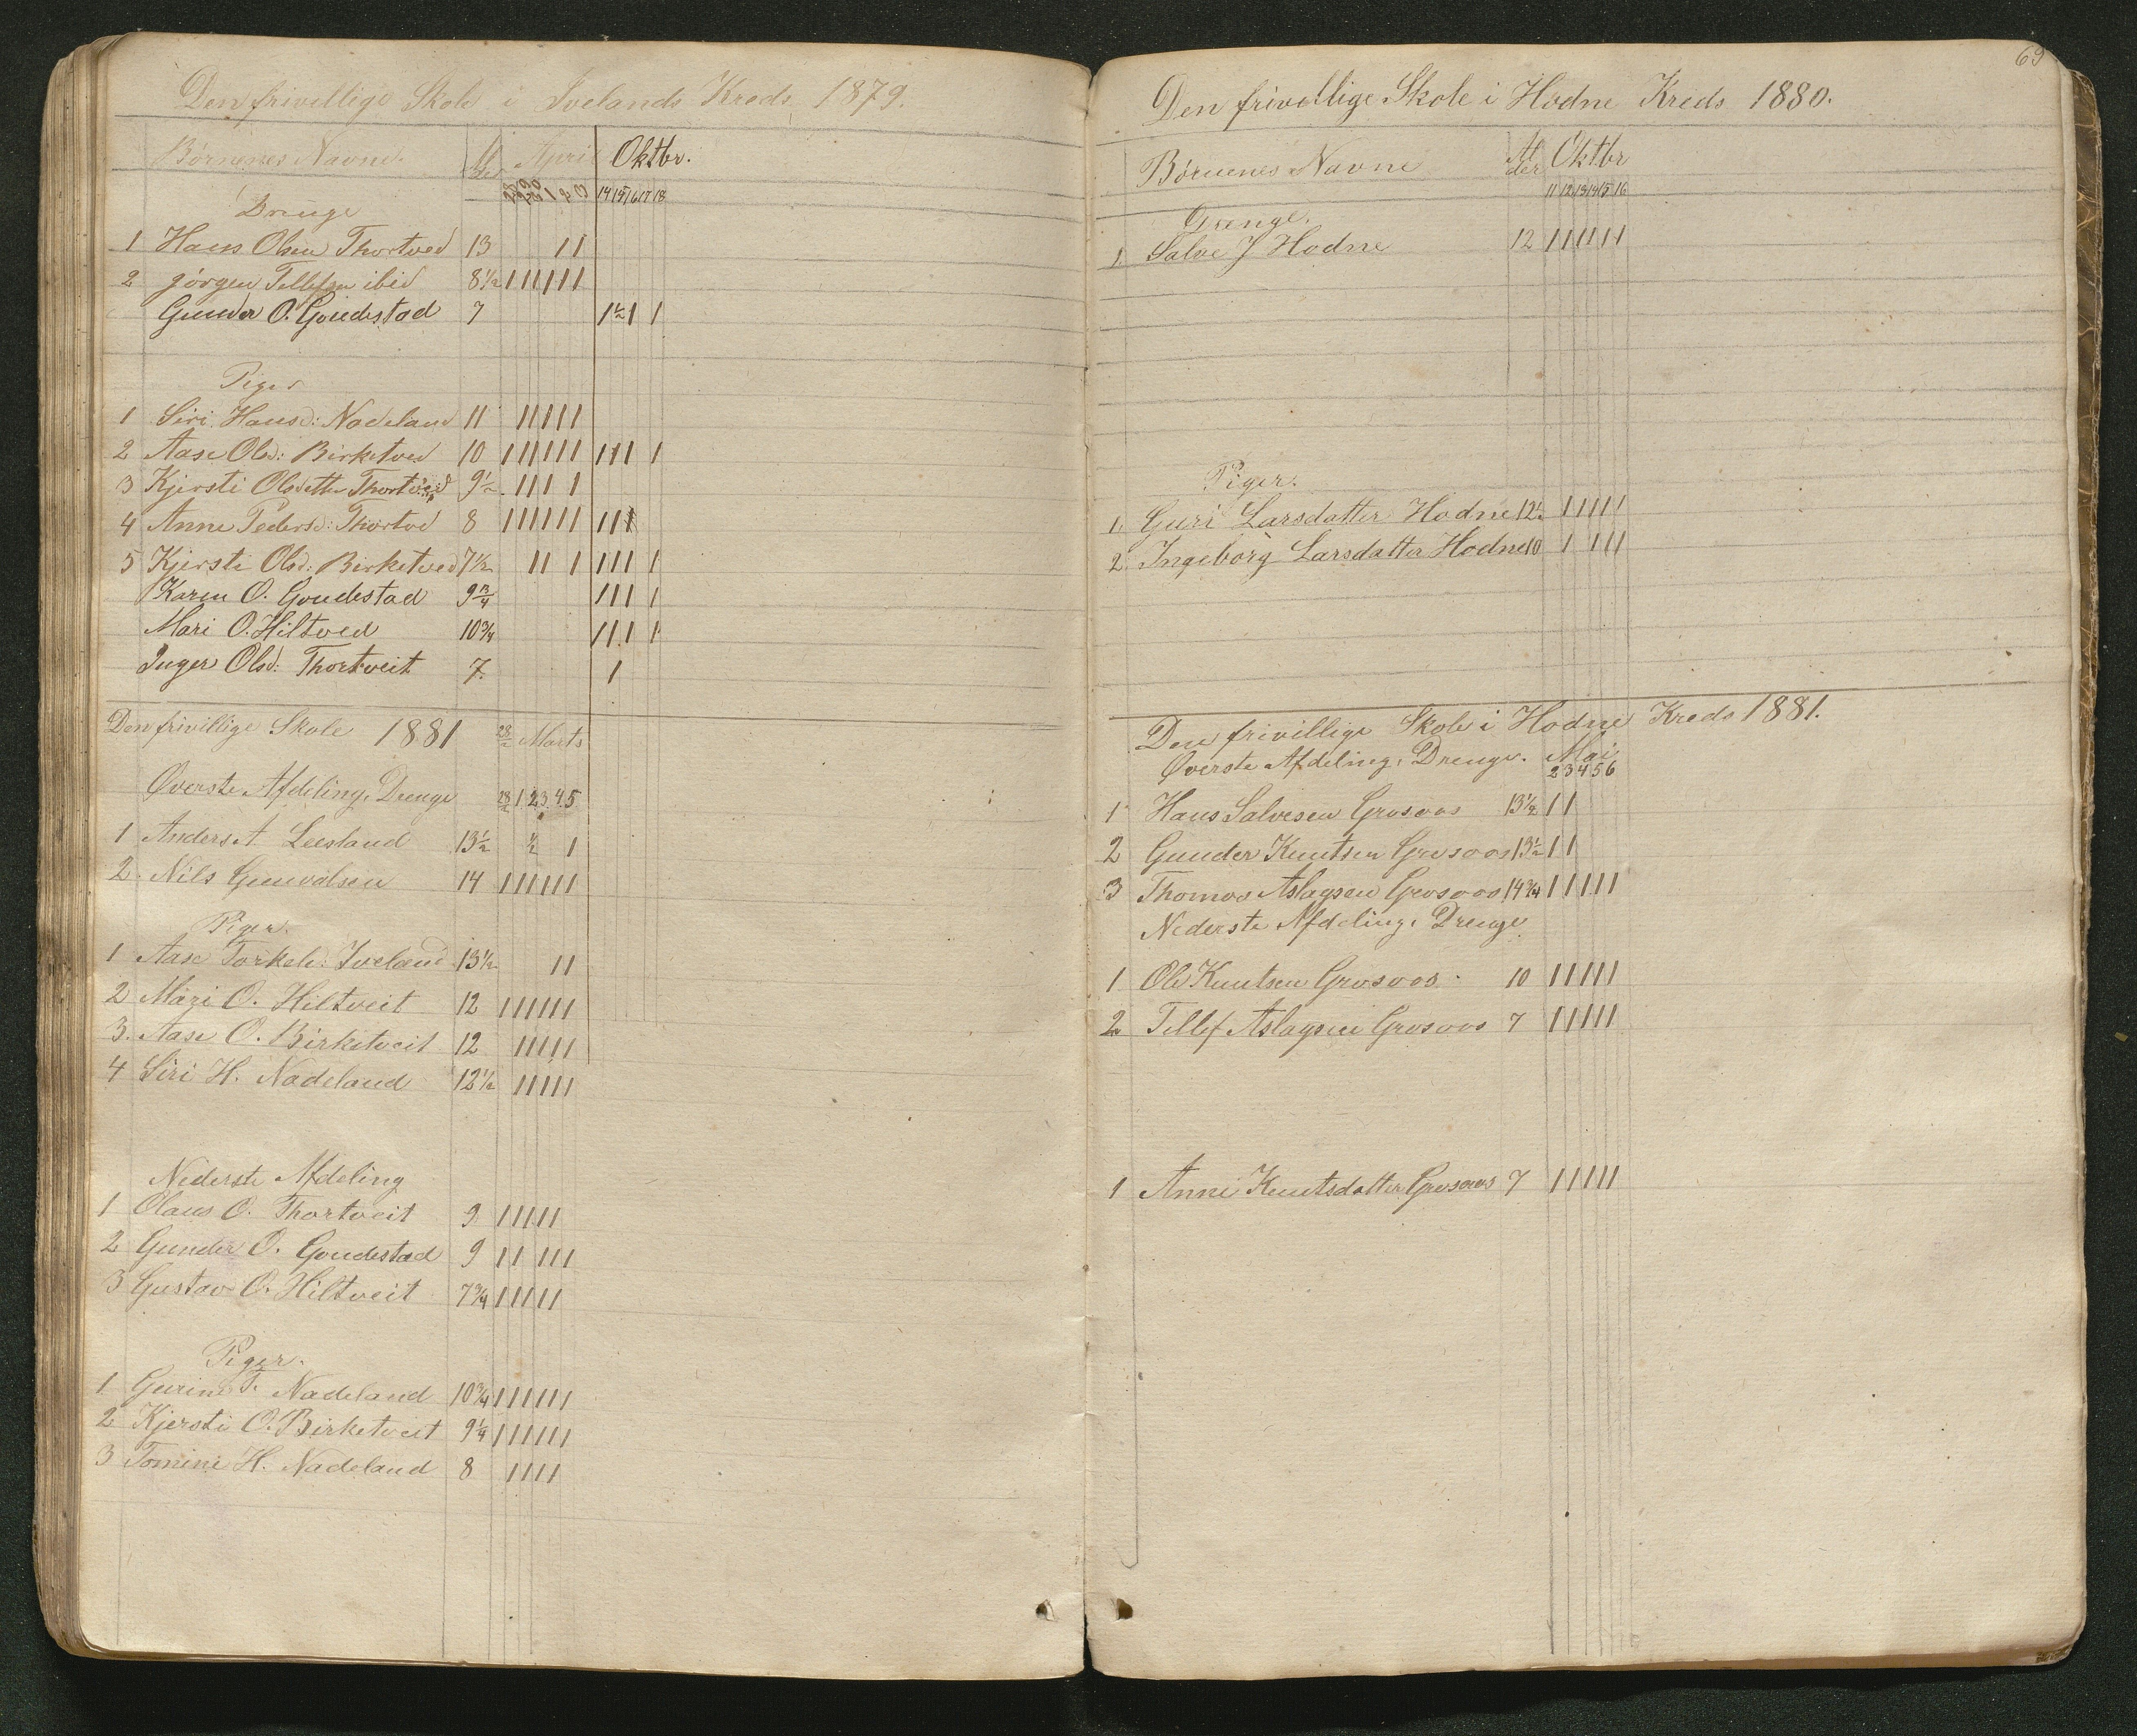 Den frivillige Skole i Ivelands Kreds 1879.
Børnenes Navne. Al der April Oktbr.
1 2 3 14 15 16 17 18
Drenge
1 Hans Olsen Thortved 13 1 1
2 Jørgen Tellefsen ibid 8½ 1 1 1 1 1 1
Gunder O. Goudestad 7 1 ½ 1 1
Piger
1 Siri Hansd: Nadeland 11 1 1 1 1 1
2 Aase Olsd: Birketved 10 1 1 1 1 1 1 1 1 1 1
3 Kjersti Olsdatter Thortveid 9½ 1 1 1 1
4 Anne Pedersd: Thortved 8 1 1 1 1 1 1 1 1 1
5 Kjersti Olsd: Birketved 7½ 1 1 1 1 1 1 1
Karen O. Goudestad 9¾ 1 1 1 1
Mari O. Hiltved 10¾ 1 1 1 1
Inger Olsd: Thortveit 7. 1
Den frivillige Skole 1881 28/2 Marts
Øverste Afdeling, Drenge 28/2 1 2 3 4 5
1 Anders A Leesland 13½ ½ 1
2 Nils Gunvalsen 14 1 1 1 1 1 1
Piger.
1 Aase Torkelsd: Iveland 13½ 1 1
2 Mari O. Hiltveit 12 1 1 1 1 1 1
3. Aase O. Birketveit 12 1 1 1 1 1
4 Siri H. Nadeland 12½ 1 1 1 1 1
Nederste Afdeling
1 Olaus O. Thortveit 9 1 1 1 1 1
2 Gunder O. Goudestad 9 1 1 1 1 1
3 Gustav O. Hiltveit 7¾ 1 1 1 1 1
Piger.
1 Gurine T. Nadeland 10¾ 1 1 1 1 1 1
2 Kjersti O. Birketveit 9¼ 1 1 1 1 1 1
3 Tomine H. Nadeland 8 1 1 1 1
69
Den frivillige Skole i Hodne Kreds 1880.
Børnenes Navne Al der Oktbr
11 12 13 14 15 16
Drenge.
1. Salve J Hodne 12 1 1 1 1 1 1
Piger.
1. Guri Larsdatter Hodne 12½ 1 1 1 1 1
2. Ingeborg Larsdatter Hodne 10 1 1 1 1
Den frivillige Skole i Hodne Kreds 1881.
Øverste Afdeling, Drenge. Mai
2 3 4 5 6
1 Hans Salvesen Grosoos 13½ 1 1
2 Gunder Knutsen Grosoos 13½ 1 1
3 Thomas Aslagsen Grosoos 14¾ 1 1 1 1 1
Nederste Afdeling, Drenge
1 Ole Knutsen Grosoos 10 1 1 1 1 1
2 Tellef Aslagsen Grosoos 7 1 1 1 1 1
1 Anne Knutsdatter Grosoos 7 1 1 1 1 1